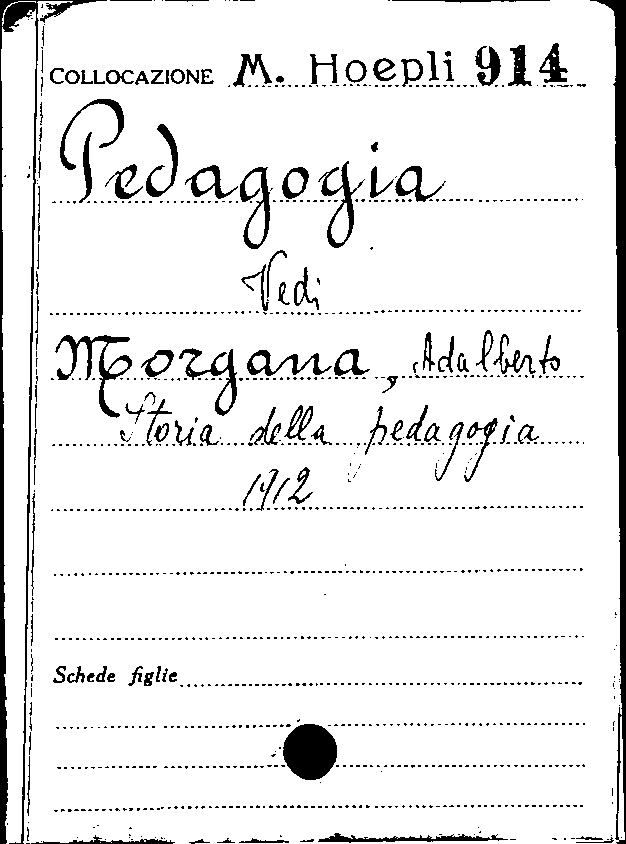 COLLOCAZIONE M. Hoepli 914
Pedagogia
Vedi
Morgana, Adalberto
Storia della pedagogia
1912
Schede figlie